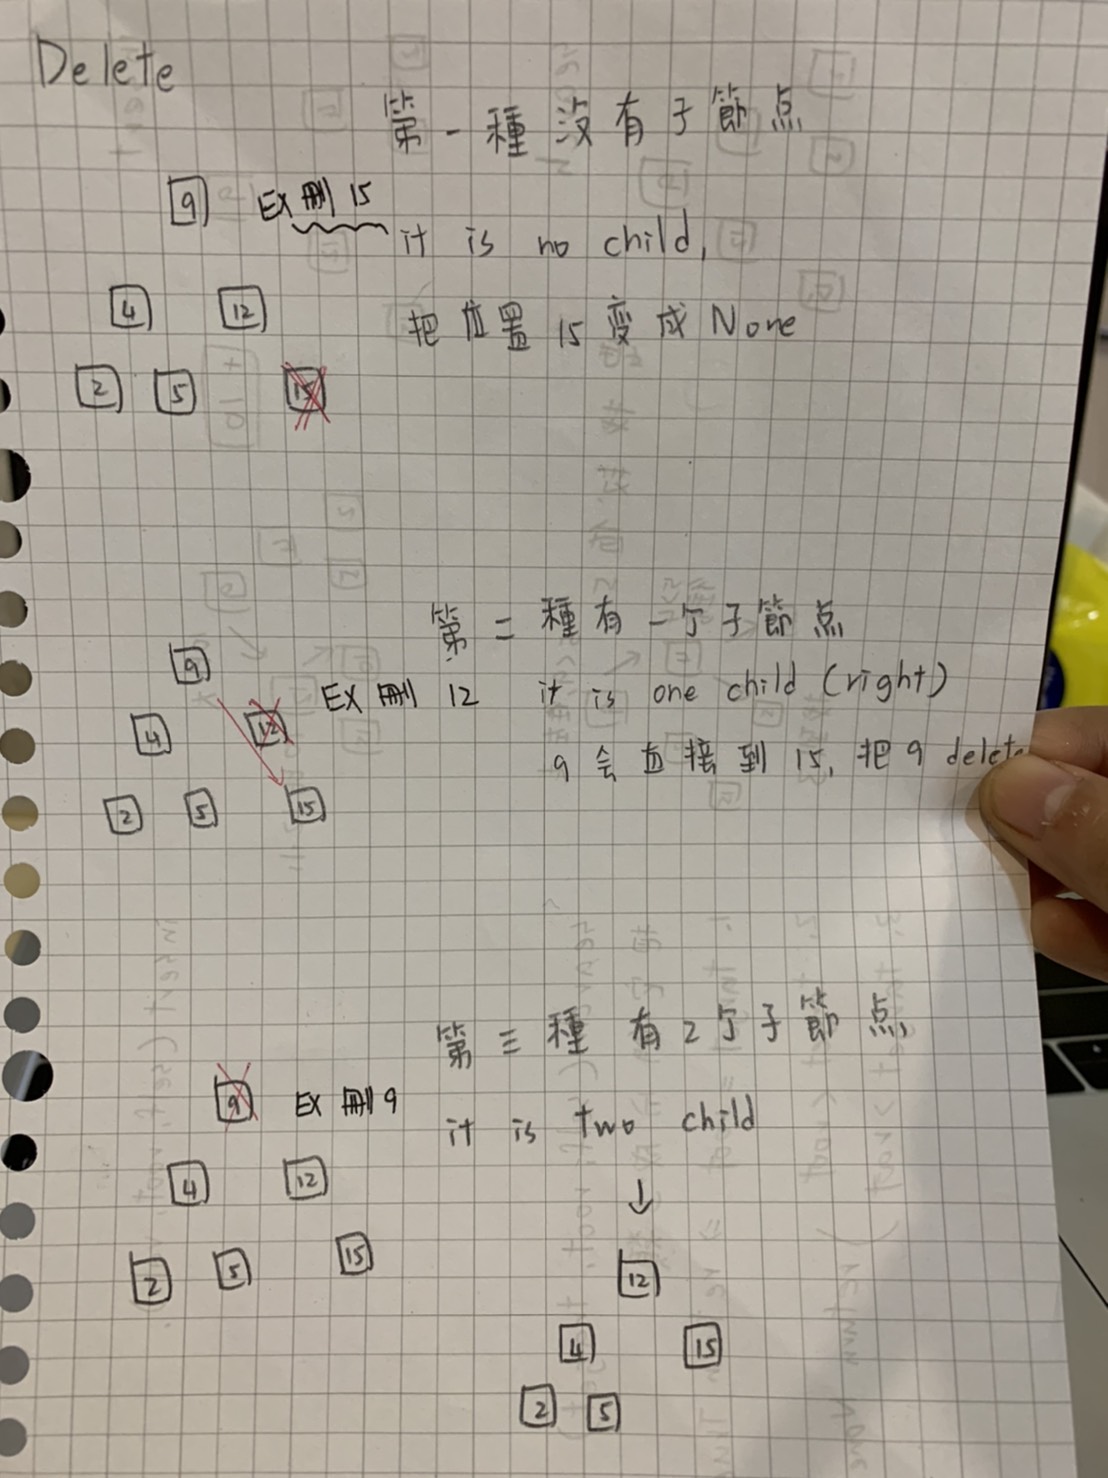 Delete
第一種 沒有子節点
9 EX 刪 15
it is no child,
4 12
把位置 15 变成 None
2 5 15
第二種有一个子節点
9
EX 刪 12 it is one child (right)
4 12
9 会直接到 15, 把 9 delete
2 5 15
第三種 有2个子節点
9 EX 刪 9
it is two child
4 12
↓
2 5 15
12
4 15
2 5